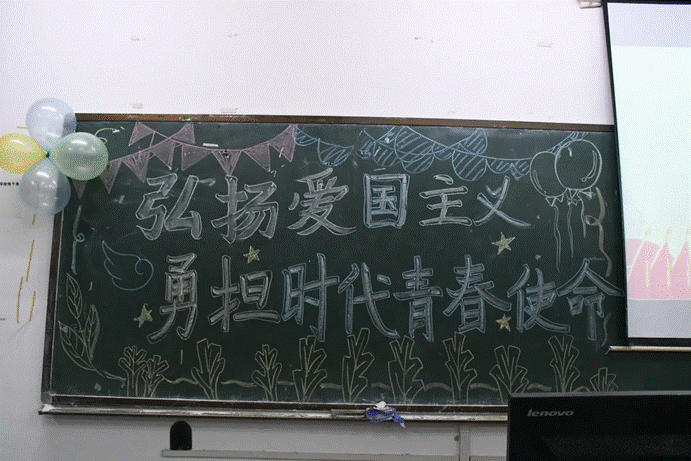 弘扬爱国主义
勇担时代青春使命
lenovo